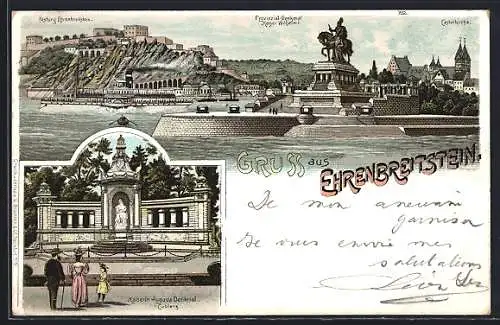 Festung Ehrenbreitstein.
Provinzial-Denkmal
Kaiser Wilhelm I.
Castorkirche.
GRUSS aus
EHRENBREITSTEIN.
De mon ancienne
garnison
Je vous envoie mes
salutations
Kaiserin Augusta Denkmal
Coblenz